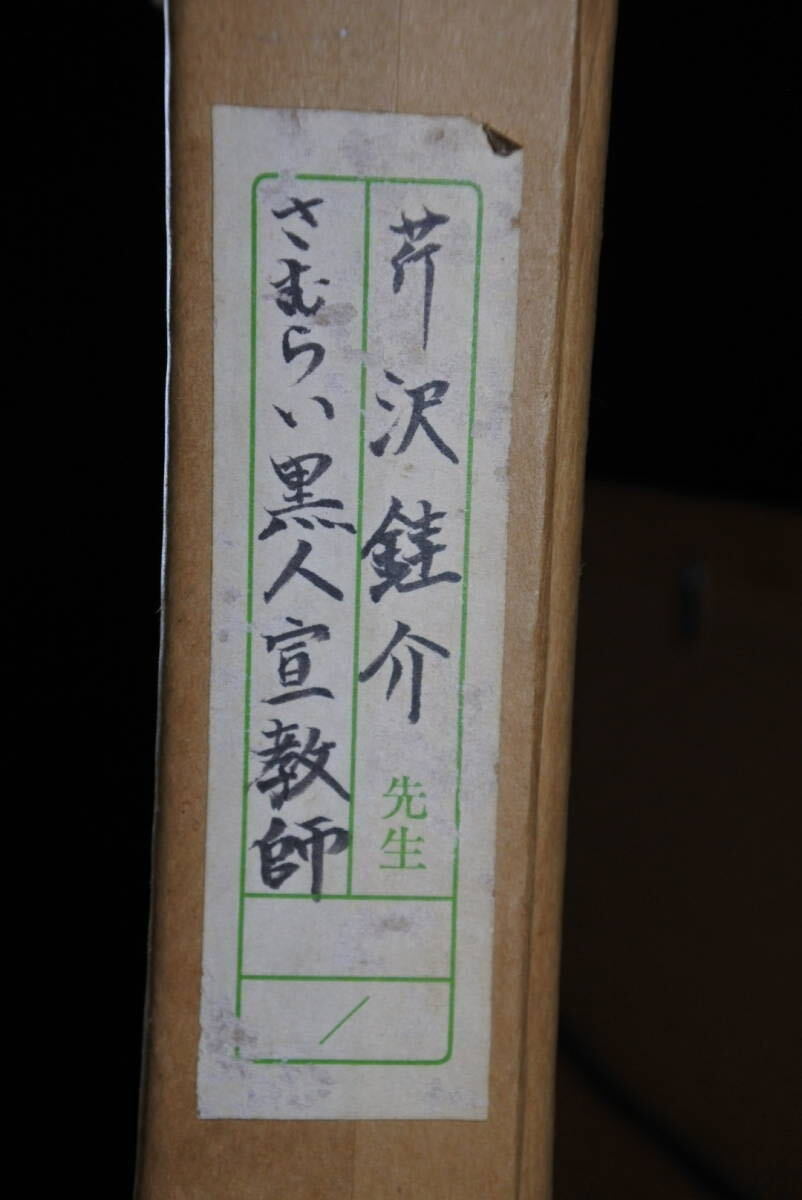 芹沢銈介 先生
さむらい黒人宣教師
/